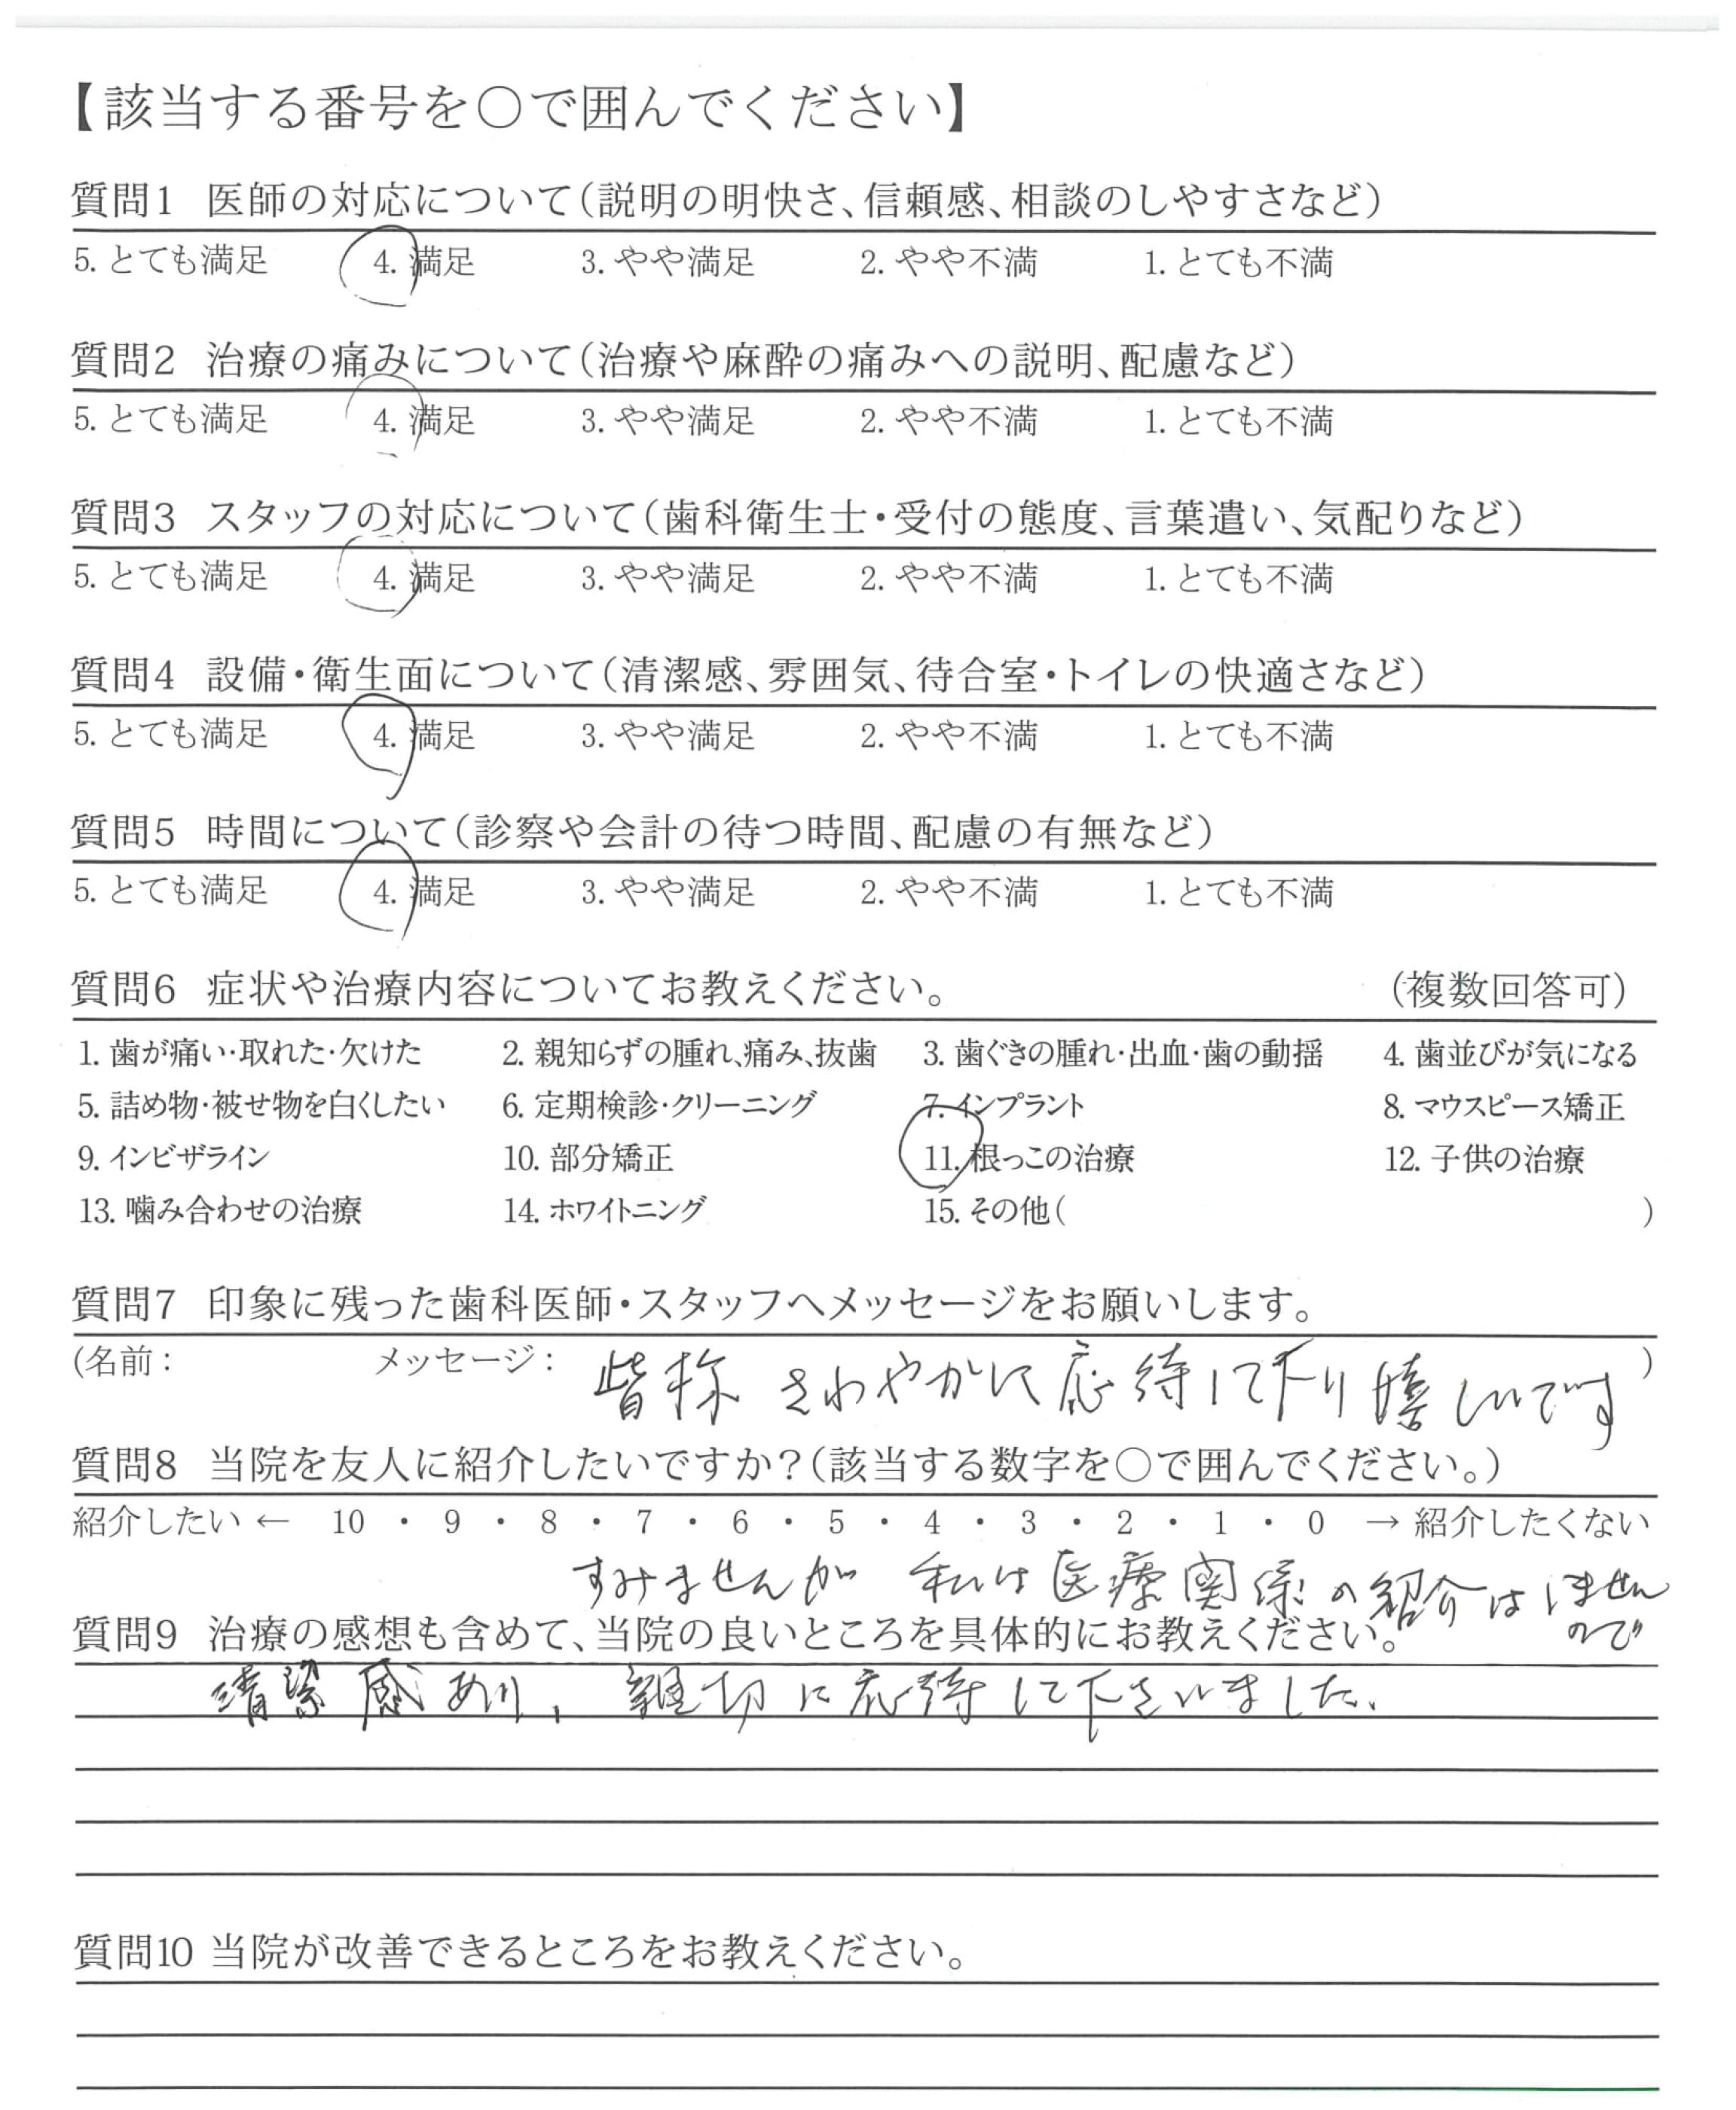 【該当する番号を〇で囲んでください】
質問1 医師の対応について(説明の明快さ、信頼感、相談のしやすさなど)
5. とても満足 4. 満足 3. やや満足 2. やや不満 1. とても不満
質問2 治療の痛みについて(治療や麻酔の痛みへの説明、配慮など)
5. とても満足 4. 満足 3. やや満足 2. やや不満 1. とても不満
質問3 スタッフの対応について(歯科衛生士・受付の態度、言葉遣い、気配りなど)
5. とても満足 4. 満足 3. やや満足 2. やや不満 1. とても不満
質問4 設備・衛生面について(清潔感、雰囲気、待合室・トイレの快適さなど)
5. とても満足 4. 満足 3. やや満足 2. やや不満 1. とても不満
質問5 時間について(診察や会計の待つ時間、配慮の有無など)
5. とても満足 4. 満足 3. やや満足 2. やや不満 1. とても不満
質問6 症状や治療内容についてお教えください。 (複数回答可)
1. 歯が痛い・取れた・欠けた 2. 親知らずの腫れ、痛み、抜歯 3. 歯ぐきの腫れ・出血・歯の動揺 4. 歯並びが気になる
5. 詰め物・被せ物を白くしたい 6. 定期検診・クリーニング 7. インプラント 8. マウスピース矯正
9. インビザライン 10. 部分矯正 11. 根っこの治療 12. 子供の治療
13. 噛み合わせの治療 14. ホワイトニング 15. その他( )
質問7 印象に残った歯科医師・スタッフへメッセージをお願いします。
(名前: メッセージ: 皆様 さわやかに応待して下り嬉しいです )
質問8 当院を友人に紹介したいですか?(該当する数字を〇で囲んでください。)
紹介したい ← 10 ・ 9 ・ 8 ・ 7 ・ 6 ・ 5 ・ 4 ・ 3 ・ 2 ・ 1 ・ 0 → 紹介したくない
すみませんが 私は医療関係の紹介はしません
ので
質問9 治療の感想も含めて、当院の良いところを具体的にお教えください。
清潔感あり、親切に応待して下さいました。
質問10 当院が改善できるところをお教えください。